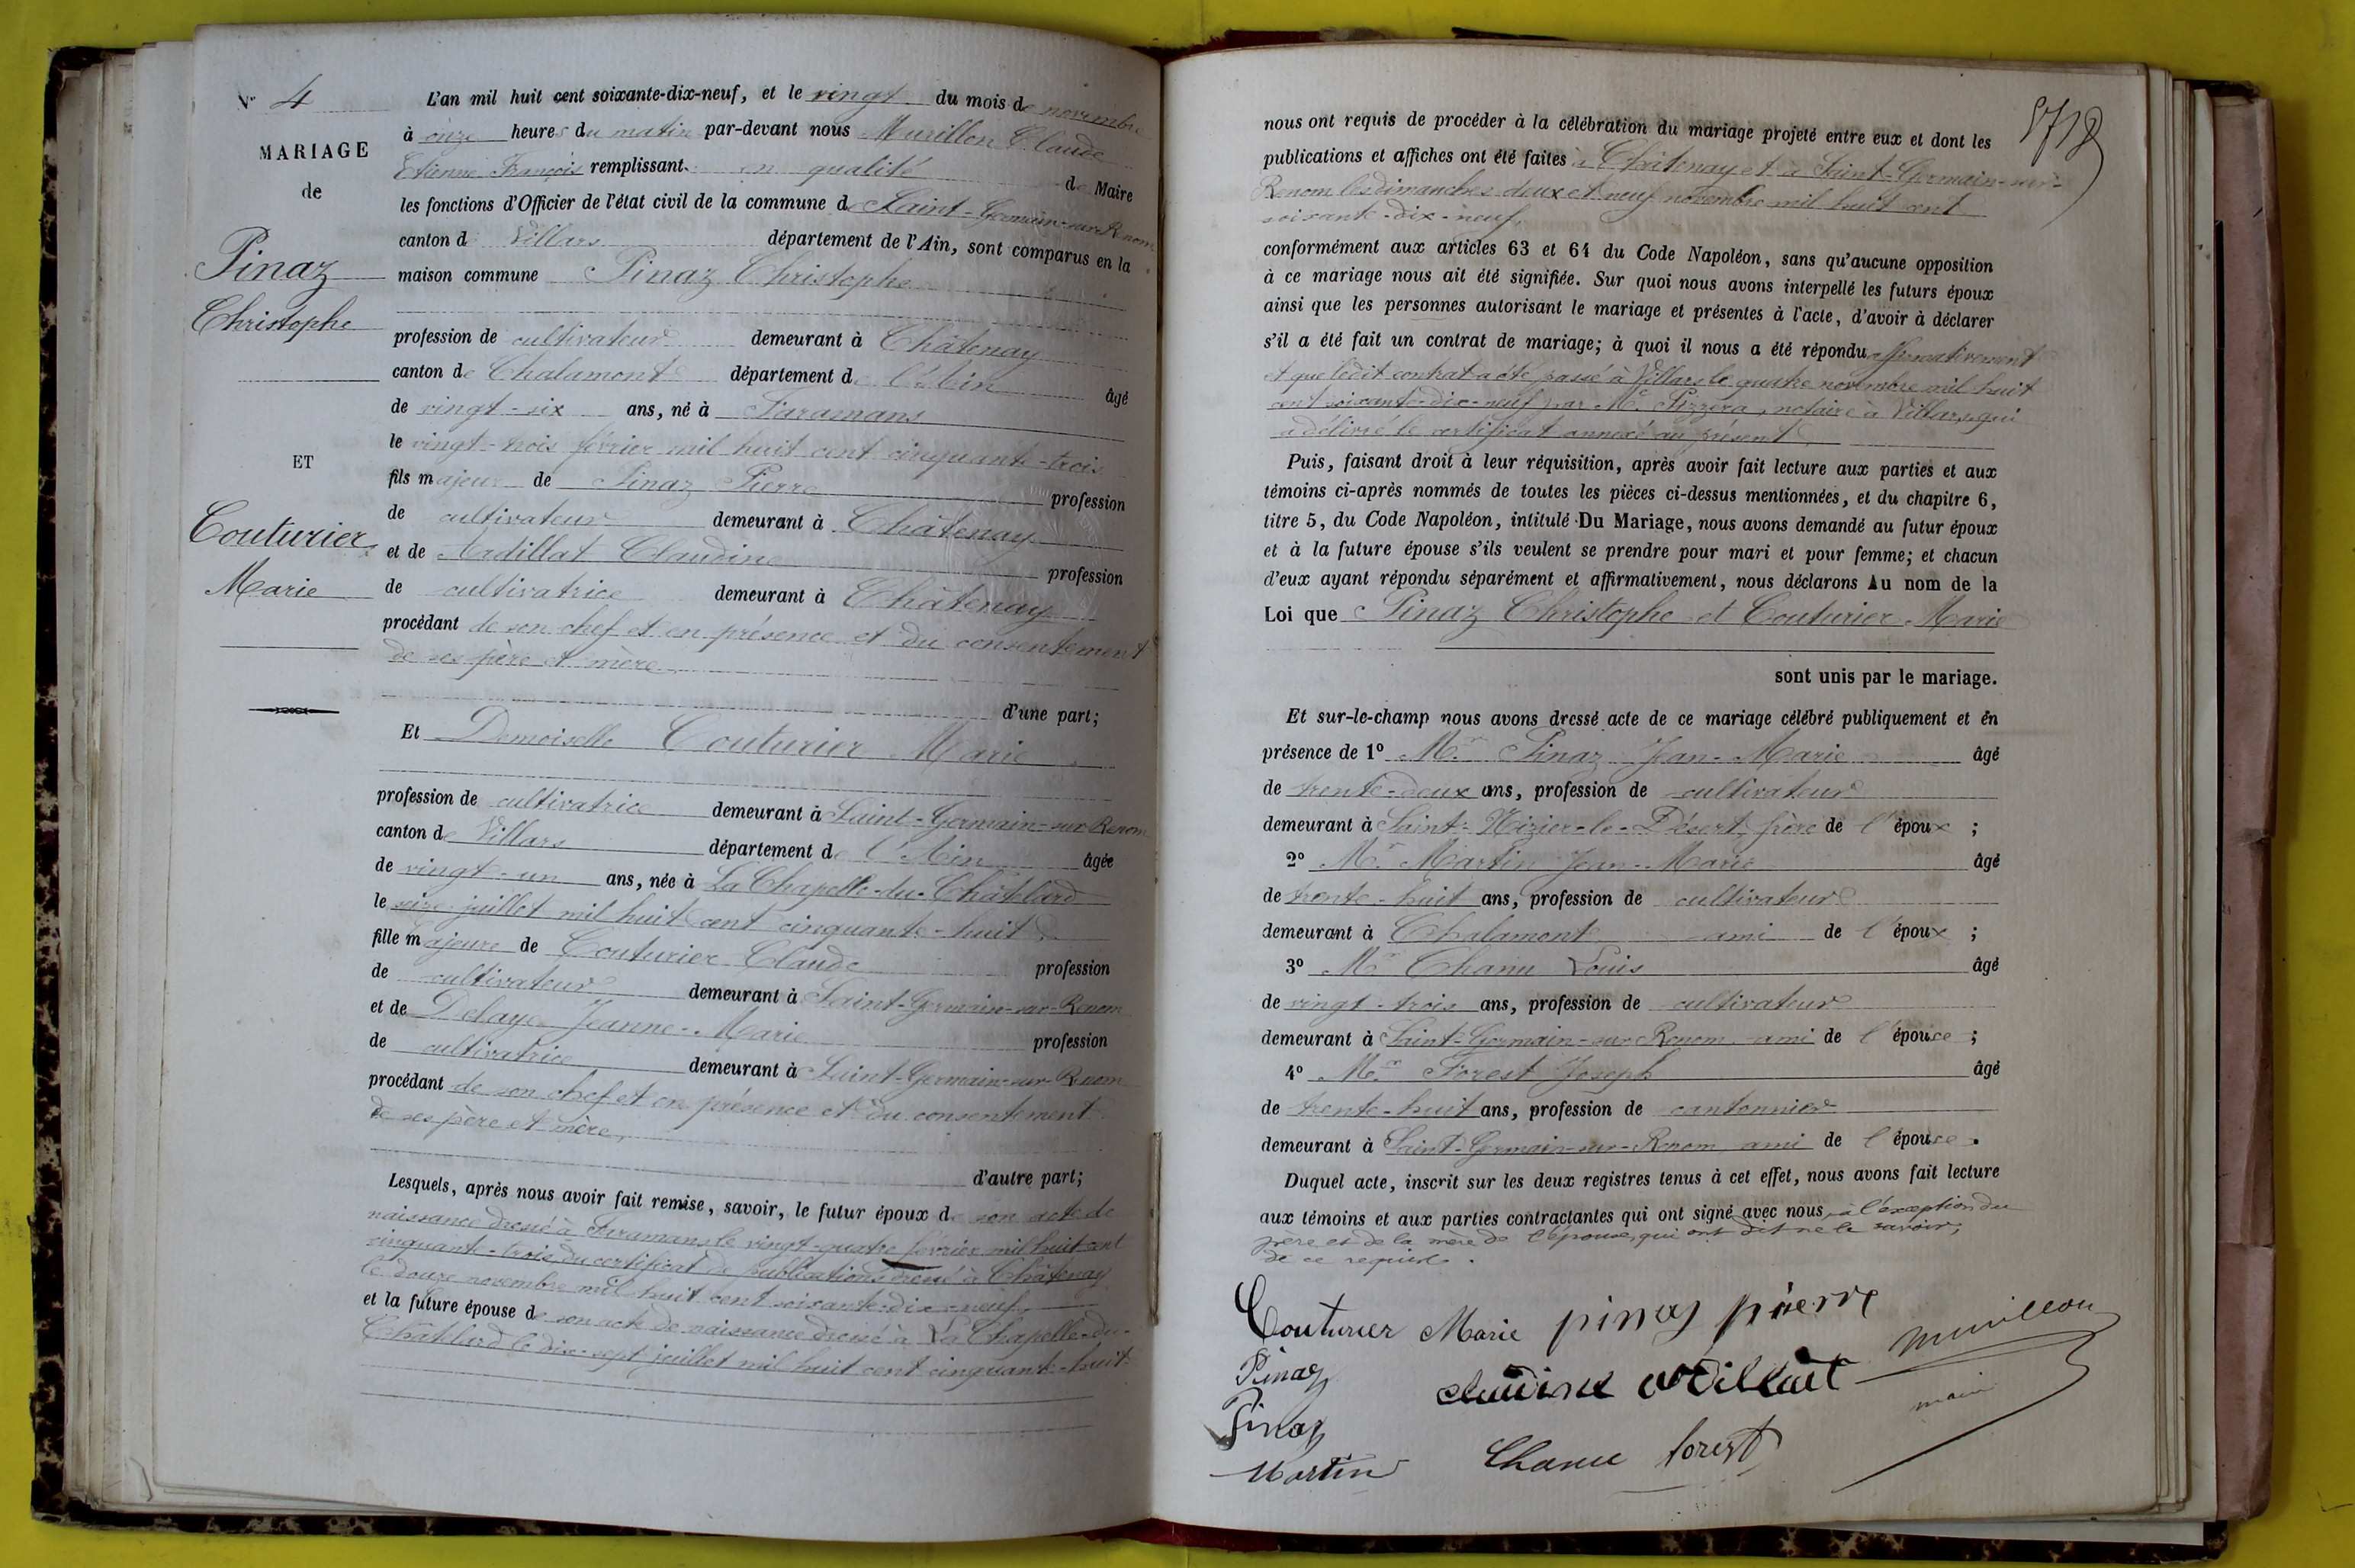 N° 4
MARIAGE
de
Pinaz
Christophe
ET
Couturier
Marie
L'an mil huit cent soixante-dix-neuf, et le vingt du mois de novembre
à onze heures du matin par-devant nous Murillon Claude
Etienne François remplissant en qualité de Maire
les fonctions d'Officier de l'état civil de la commune de Saint-Germain-sur-Renom
canton de Villars département de l'Ain, sont comparus en la
maison commune Pinaz Christophe
profession de cultivateur demeurant à Châtenay
canton de Chalamont département de l'Ain âgé
de vingt-six ans, né à Faramans
le vingt-trois février mil huit cent cinquante-trois
fils majeur de Pinaz Pierre profession
de cultivateur demeurant à Châtenay
et de Ardillat Claudine profession
de cultivatrice demeurant à Châtenay
procédant de son chef et en présence et du consentement
de ses père et mère
d'une part;
Et Demoiselle Couturier Marie
profession de cultivatrice demeurant à Saint-Germain-sur-Renom
canton de Villars département de l'Ain âgée
de vingt-un ans, née à La Chapelle-du-Châtelard
le seize juillet mil huit cent cinquante-huit
fille majeure de Couturier Claude profession
de cultivateur demeurant à Saint-Germain-sur-Renom
et de Delaye Jeanne-Marie profession
de cultivatrice demeurant à Saint-Germain-sur-Renom
procédant de son chef et en présence et du consentement
de ses père et mère,
d'autre part;
Lesquels, après nous avoir fait remise, savoir, le futur époux de son acte de
naissance dressé à Faramans le vingt-quatre février mil huit cent
cinquante-trois, du certificat de publications dressé à Châtenay
le douze novembre mil huit cent soixante-dix-neuf,
et la future épouse de son acte de naissance dressé à La Chapelle-du-
Châtelard le dix-sept juillet mil huit cent cinquante-huit
nous ont requis de procéder à la célébration du mariage projeté entre eux et dont les
publications et affiches ont été faites à Châtenay et à Saint-Germain-sur-
Renom les dimanches deux et neuf novembre mil huit cent
soixante-dix-neuf,
conformément aux articles 63 et 64 du Code Napoléon, sans qu'aucune opposition
à ce mariage nous ait été signifiée. Sur quoi nous avons interpellé les futurs époux
ainsi que les personnes autorisant le mariage et présentes à l'acte, d'avoir à déclarer
s'il a été fait un contrat de mariage; à quoi il nous a été répondu affirmativement
et que ledit contrat a été passé à Villars le quatre novembre mil huit
cent soixante-dix-neuf par Me Pizzera, notaire à Villars, qui
a délivré le certificat annexé au présent
Puis, faisant droit à leur réquisition, après avoir fait lecture aux parties et aux
témoins ci-après nommés de toutes les pièces ci-dessus mentionnées, et du chapitre 6,
titre 5, du Code Napoléon, intitulé Du Mariage, nous avons demandé au futur époux
et à la future épouse s'ils veulent se prendre pour mari et pour femme; et chacun
d'eux ayant répondu séparément et affirmativement, nous déclarons Au nom de la
Loi que Pinaz Christophe et Couturier Marie
sont unis par le mariage.
Et sur-le-champ nous avons dressé acte de ce mariage célébré publiquement et en
présence de 1° Mr Pinaz Jean-Marie âgé
de trente-deux ans, profession de cultivateur
demeurant à Saint-Nizier-le-Désert, frère de l'époux ;
2° Mr Martin Jean-Marie âgé
de trente-huit ans, profession de cultivateur
demeurant à Chalamont ami de l'époux ;
3° Mr Chanu Louis âgé
de vingt-trois ans, profession de cultivateur
demeurant à Saint-Germain-sur-Renom ami de l'épouse ;
4° Mr Forest Joseph âgé
de trente-huit ans, profession de cantonnier
demeurant à Saint-Germain-sur-Renom ami de l'épouse.
Duquel acte, inscrit sur les deux registres tenus à cet effet, nous avons fait lecture
aux témoins et aux parties contractantes qui ont signé avec nous, à l'exception du
père et de la mère de l'épouse, qui ont dit ne le savoir,
de ce requis.
Couturier Marie pinaz pierre
Pinaz claudine ardillat murillon
Pinaz maire
Martin Chanu forest